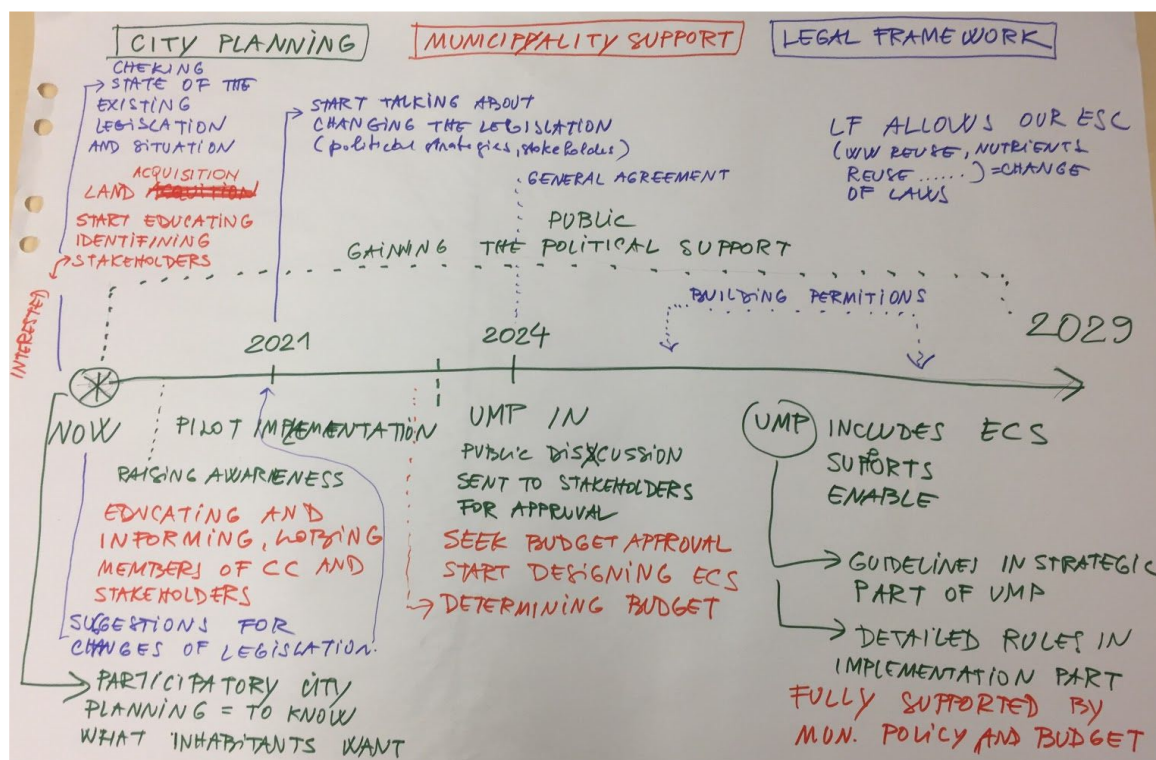 CITY PLANNING
MUNICIPALITY SUPPORT
LEGAL FRAMEWORK
CHEKING
STATE OF THE
EXISTING
LEGISLATION
AND SITUATION
ACQUISITION
LAND
START EDUCATING
IDENTIFINING
STAKEHOLDERS
INTERESTED
START TALKING ABOUT
CHANGING THE LEGISLATION
(political strategies, stakeholders)
GENERAL AGREEMENT
LF ALLOWS OUR ESC
(WW REUSE, NUTRIENTS
REUSE ......) = CHANGE
OF LAWS
PUBLIC
GAINNING THE POLITICAL SUPPORT
BUILDING PERMITIONS
2021
2024
2029
NOW
PILOT IMPLEMENTATION
RAISING AWARENESS
EDUCATING AND
INFORMING, LOBING
MEMBERS OF CC AND
STAKEHOLDERS
SUGESTIONS FOR
CHANGES OF LEGISLATION.
PARTICIPATORY CITY
PLANNING = TO KNOW
WHAT INHABITANTS WANT
UMP IN
PUBLIC DISCUSSION
SENT TO STAKEHOLDERS
FOR APPRUVAL
SEEK BUDGET APPROVAL
START DESIGNING ECS
DETERMINING BUDGET
UMP INCLUDES ECS
SUPORTS
ENABLE
GUIDELINES IN STRATEGIC
PART OF UMP
DETAILED RULES IN
IMPLEMENTATION PART
FULLY SUPPORTED BY
MUN. POLICY AND BUDGET